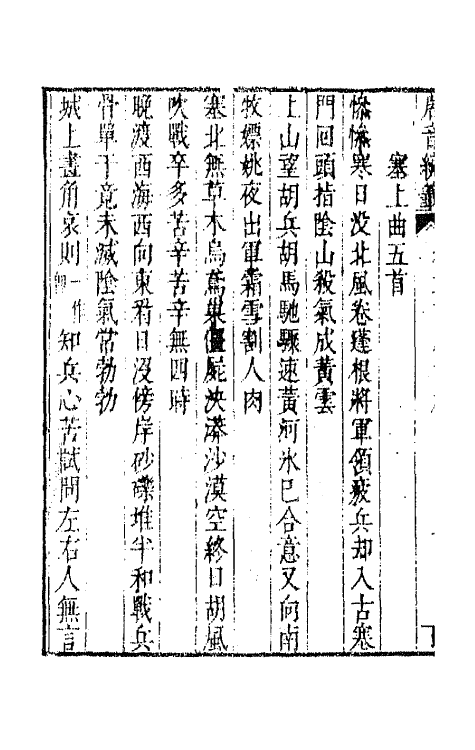 唐音統籤
塞上曲五首
慘慘寒日没北風卷蓬根將軍領疲兵却入古塞
門回頭指陰山殺氣成黄雲
上山望胡兵胡馬馳驟速黄河氷已合意又向南
牧嫖姚夜出軍霜雪割人肉
塞北無草木烏鳶巢僵屍泱漭沙漠空終日胡風
吹戰卒多苦辛苦辛無四時
晩渡西海西向東看日没傍岸砂礫堆半和戰兵
骨單于竟未滅陰氣常勃勃
城上畫角哀則一作卽知兵心苦試問左右人無言